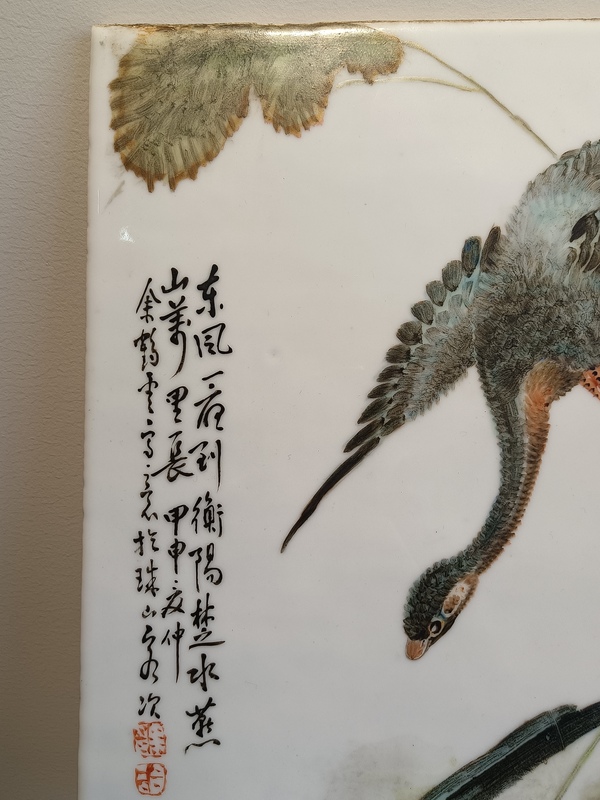 东风一夜到衡陽楚水燕
山萬里長 甲申夏仲
余鶴雲写意於珠山客次